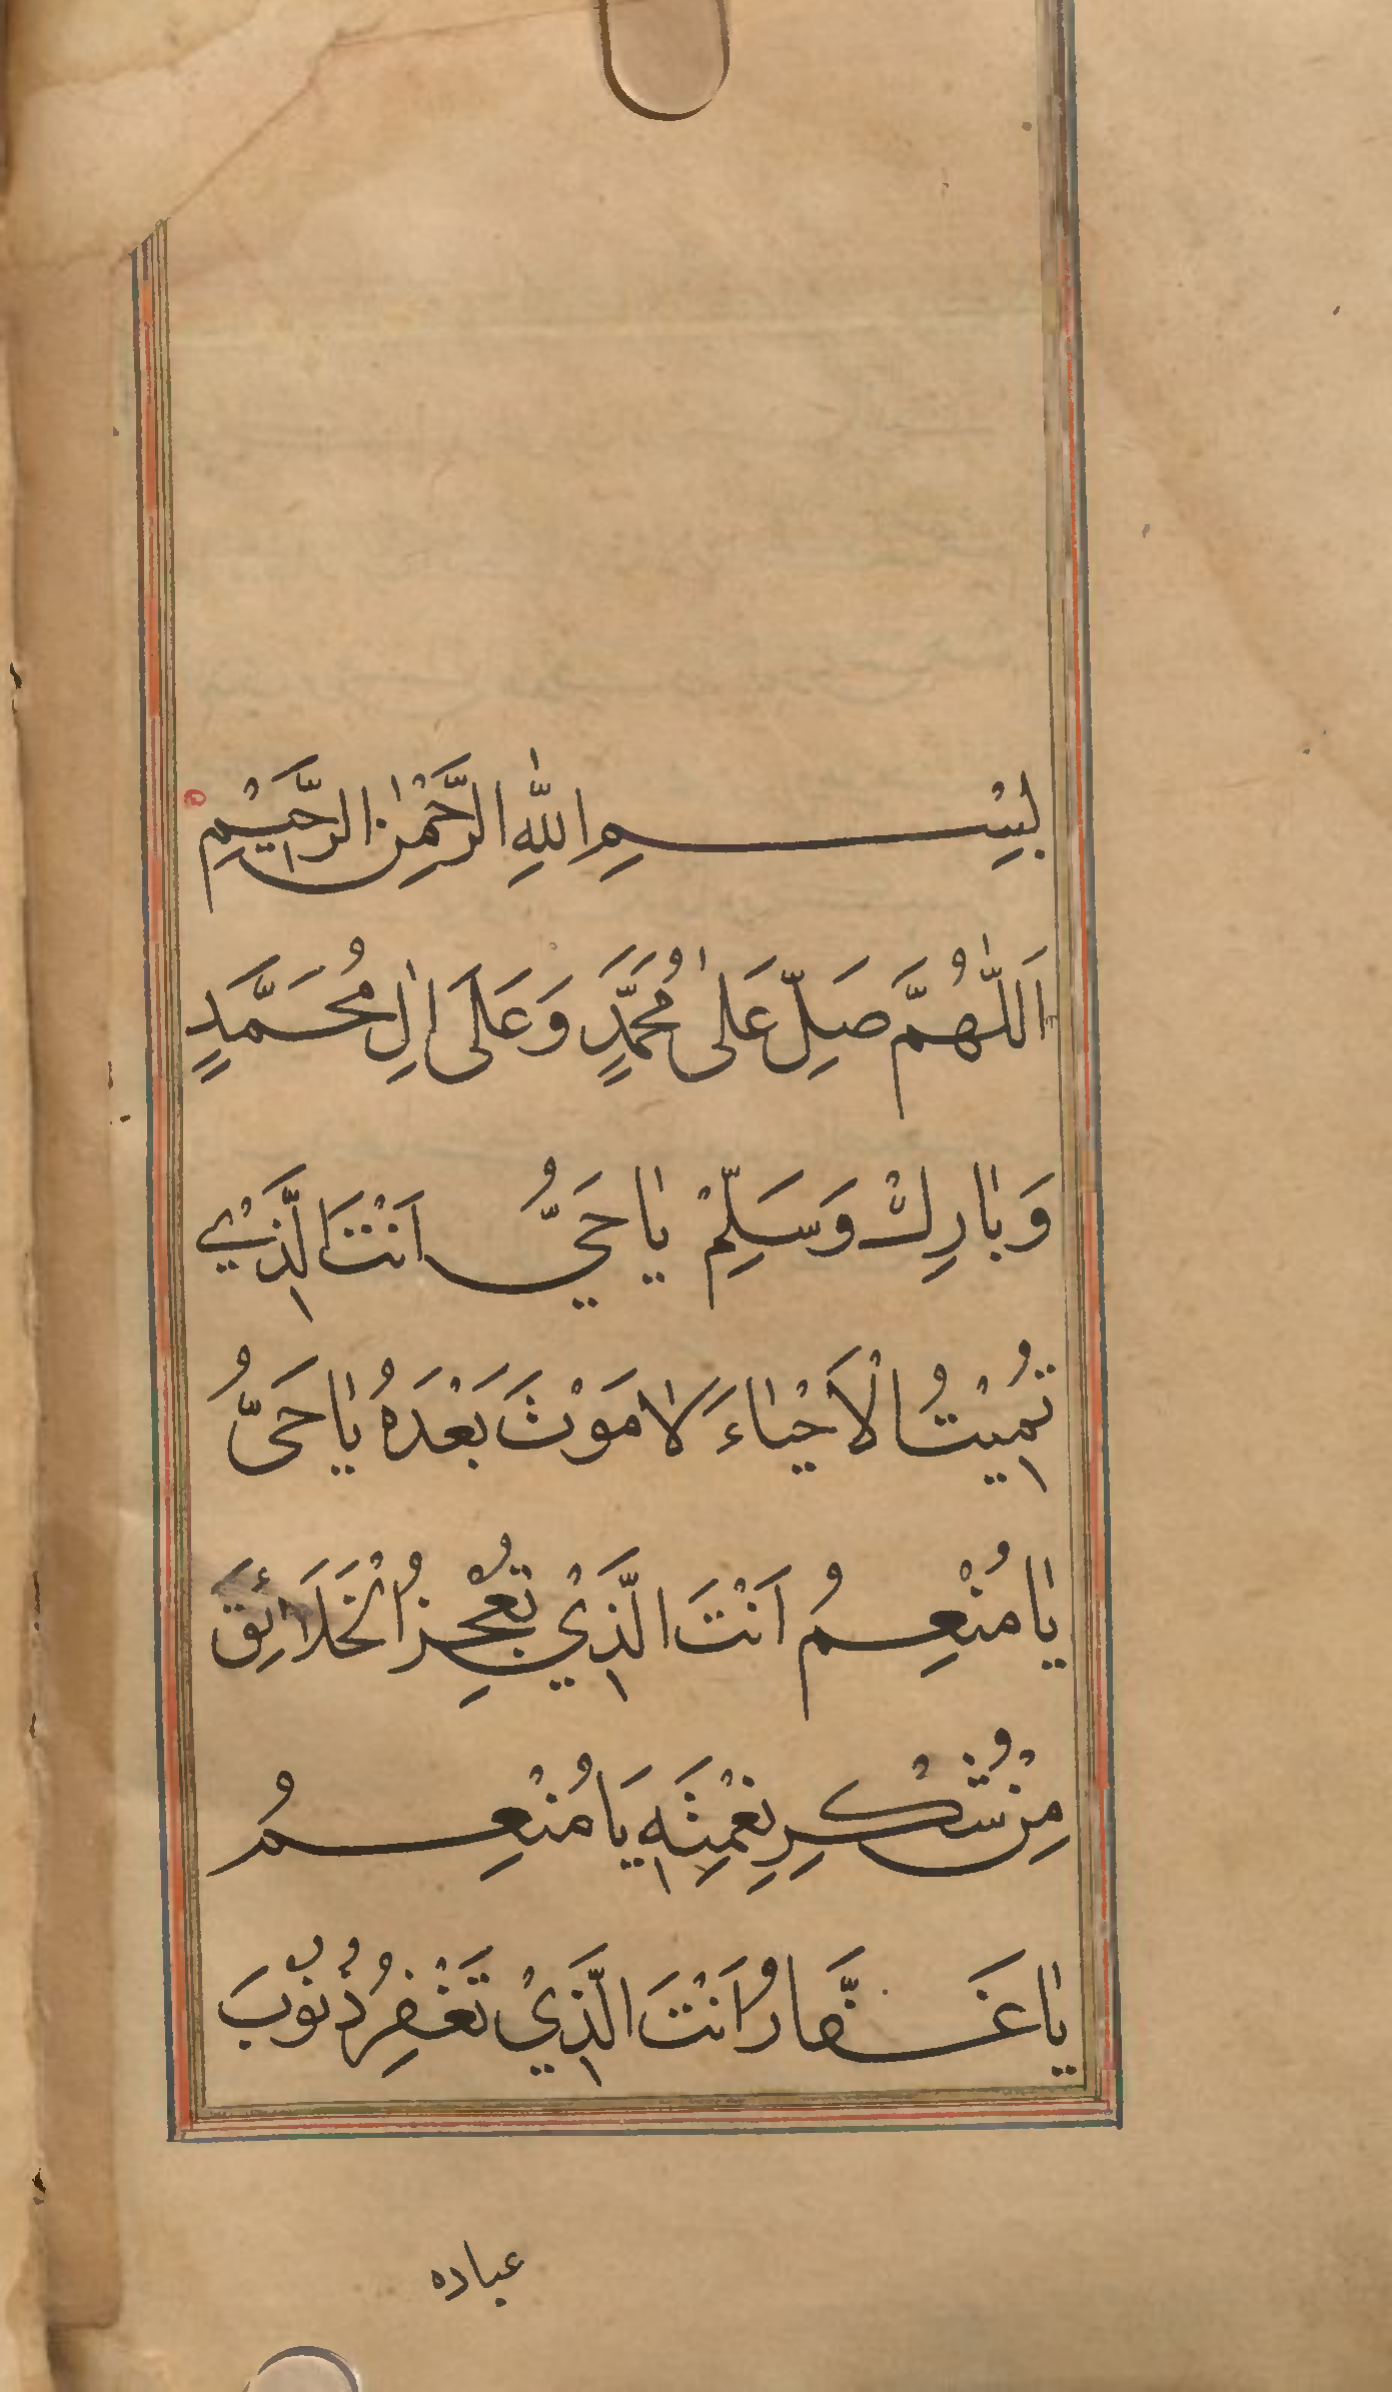 بِسْمِ اللّٰهِ الرَّحْمٰنِ الرَّحِيْمِ
اَللّٰهُمَّ صَلِّ عَلىٰ مُحَمَّدٍ وَعَلَى اٰلِ مُحَمَّدٍ
وَبٰارِكْ وَسَلِّمْ يٰا حَيُّ اَنْتَ الَّذِيْ
تُمِيْتُ الْاَحْيٰاءَ لٰا مَوْتَ بَعْدَهُ يٰا حَىُّ
يٰا مُنْعِمُ اَنْتَ الَّذِيْ تُعْجِزُ الْخَلَائِقَ
مِنْ شُكْرِ نِعْمَتِهٖ يَا مُنْعِمُ
يٰا غَفَّارُ اَنْتَ الَّذِيْ تَغْفِرُ ذُنُوْبَ
عباده